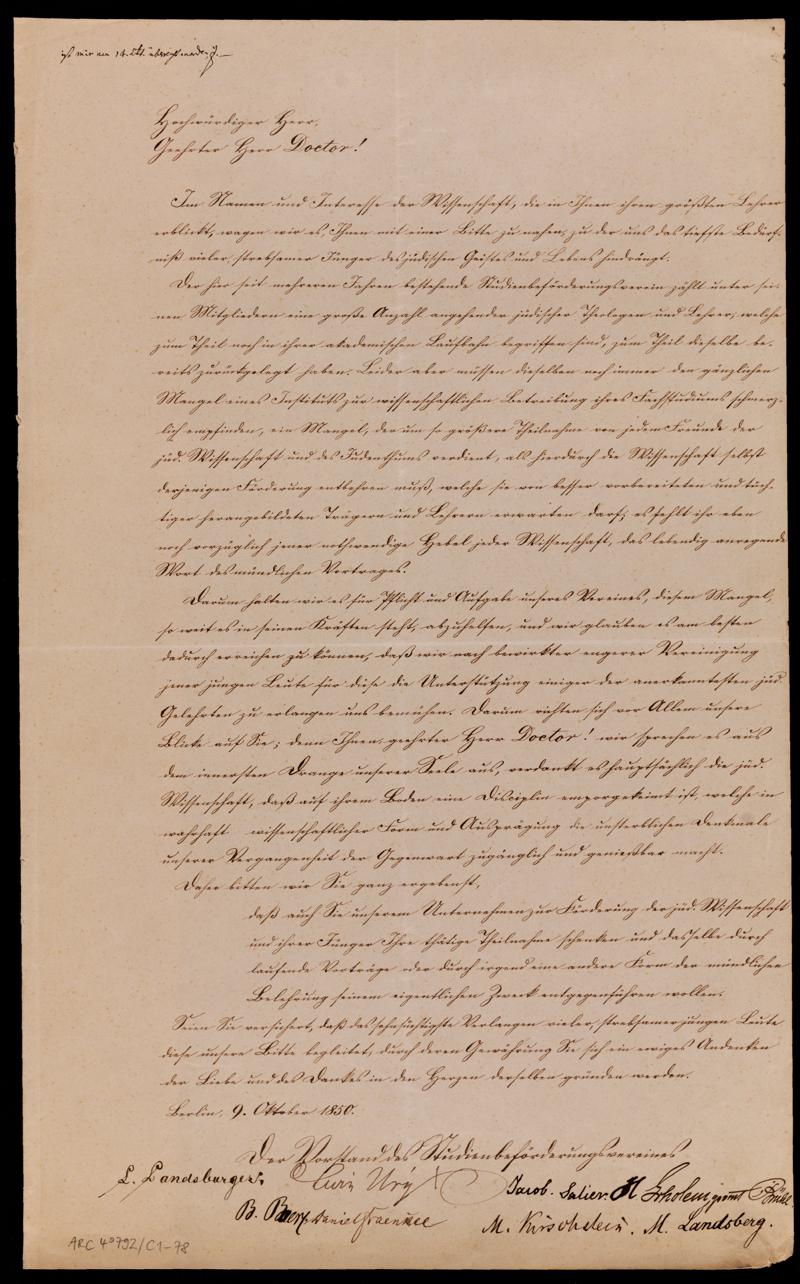 ist mir am 14. Okt. überreicht worden Z.
Hochwürdiger Herr,
Geehrter Herr Doctor!
Im Namen und Interesse der Wissenschaft, die in Ihnen ihren größten Lehrer
erblickt, wagen wir es Ihnen mit einer Bitte zu nahen, zu der uns das tiefste Bedürf-
niß vieler, strebsamer Jünger des jüdischen Geistes und Lebens hindrängt.
Der hier seit mehreren Jahren bestehende Studienbeförderungsverein zählt unter sei-
nen Mitgliedern eine große Anzahl angehender jüdischer Theologen und Lehrer, welche
zum Theil noch in ihrer akademischen Laufbahn begriffen sind, zum Theil dieselbe be-
reits zurückgelegt haben. Leider aber müssen dieselben noch immer den gänzlichen
Mangel eines Instituts zur wissenschaftlichen Betreibung ihres Fachstudiums schmerz-
lich empfinden, ein Mangel, der um so größere Theilnahme von jedem Freunde der
jüd. Wissenschaft und des Judenthums verdient, als hierdurch die Wissenschaft selbst
derjenigen Förderung entbehren muß, welche sie von besser vorbereiteten und tüch-
tiger herangebildeten Trägern und Lehrern erwarten darf; es fehlt ihr eben
noch vorzüglich jener nothwendige Hebel jeder Wissenschaft, das lebendig anregende
Wort des mündlichen Vortrages.
Darum halten wir es für Pflicht und Aufgabe unseres Vereines, diesem Mangel,
so weit es in seinen Kräften steht, abzuhelfen, und wir glauben es am besten
dadurch erreichen zu können, daß wir nach bewirkter engerer Vereinigung
jener jungen Leute für diese die Unterstützung einiger der anerkanntesten jüd.
Gelehrten zu erlangen uns bemühen. Darum richten sich vor Allem unsere
Blicke auf Sie; denn Ihnen, geehrter Herr Doctor! wir sprechen es aus
dem innersten Drange unserer Seele aus, verdankt es hauptsächlich die jüd.
Wissenschaft, daß auf ihrem Boden eine Disciplin emporgekeimt ist, welche in
wahrhaft wissenschaftlicher Form und Ausprägung die unsterblichen Denkmale
unserer Vergangenheit der Gegenwart zugänglich und genießbar macht.
Daher bitten wir Sie ganz ergebenst,
daß auch Sie unserem Unternehmen zur Förderung der jüd. Wissenschaft
und ihrer Jünger Ihre thätige Theilnahme schenken und dasselbe durch
laufende Vorträge oder durch irgend eine andere Form der mündlichen
Belehrung seinem eigentlichen Zweck entgegenführen wollen.
Seien Sie versichert, daß das sehnsüchtigste Verlangen vieler, strebsamer jungen Leute
diese unsere Bitte begleitet, durch deren Gewährung Sie sich ein ewiges Andenken
der Liebe und des Dankes in den Herzen derselben gründen werden.
Berlin, 9. Oktober 1850.
Der Vorstand des Studienbeförderungsvereines
L. Landsburger. Ury Jacob. Salier. H Scholem
B. Baer Daniel Fraenkel M. Kirschstein. M. Landsberg.
ARC 4° 792/C1-78